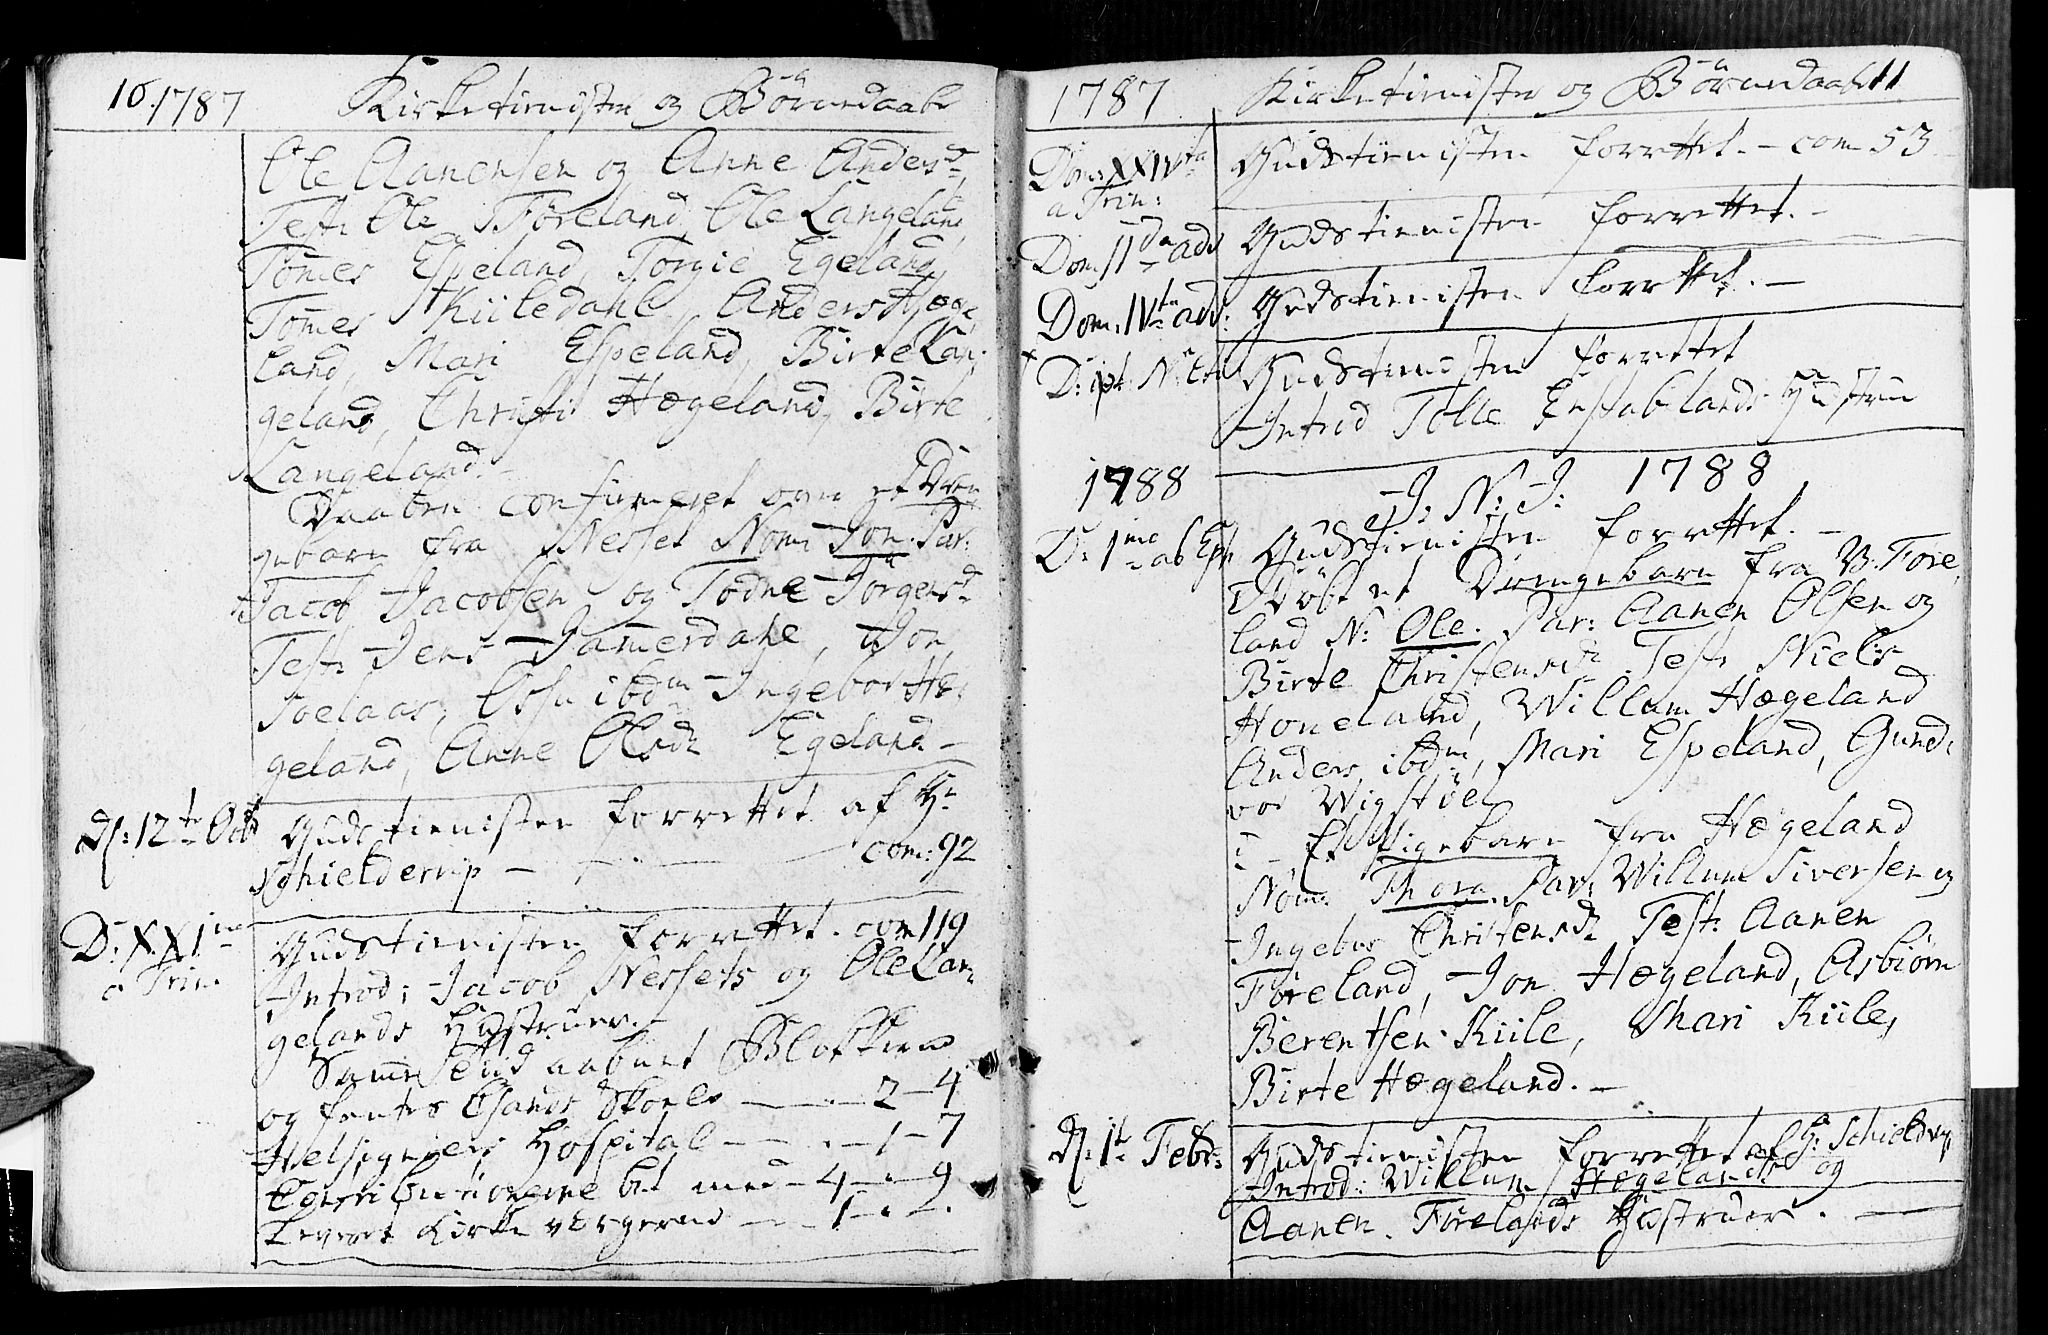 10. 1787 Kirketienisten og Börnedaab
Ole Aanensen og Anne Andersd.
Test: Ole Föreland, Ole Langeland,
Tomes Espeland, Torgie Egeland,
Tomes Kiiledahl, Anders Hæge,
land, Mari Espeland, Birte Lan,
geland, Christi Hægeland, Birte
Langeland.
Daaben confirmeret over et Dren
gebarn fra Nesset Nom: Jon. Par:
Jacob Jacobsen og Todne Jörgensd.
Test: Jens Jamerdahl, Jon
Foelaas, ibdm Ingebor Hæ,
geland, Anne Olsd. Egeland
D: 12te Octb Gudstienisten forrettet af Hr
Schielderup - com: 92
D: XXIma
a Trin. Gudstienisten forrettet. com 119
Introd: Jacob Nessets og Ole Lan,
gelands Hustruer.
Samme tiid aabnet Blokkene
og fantes Skoele 2 - 4
Helsignørs Hospital - 1 - 7
Contributionerne bet med - 4 - 9
Levert Kirke værgerne - 1 -
1787 Kirketienisten og Börnedaab 11
Dom: XXIVta
a Trin: Gudstienisten forrettet. - com 53
Dom IIda adv Gudstienisten forrettet. -
Dom. IVta adv: Gudstienisten forrettet. -
Gudstienisten forrettet
Introd Tolle Enstablands Hustrue
1788 I. N: J: 1788
D: 1ma ab Eph Gudstienisten forrettet. -
Döbt et Drengebarn fra B.Före,
land N: Ole. Par: Aanen Olsen og
Birte Christensd. Test: Niels
Honeland, Willum Hægeland
Anders ibdm, Mari Espeland, Gund,
vor Wigstöel
Et Pigebarn fra Hægeland
Nom: Thora. Par: Willum Siversen og
Ingebor Christensd. Test: Aanen
Föreland, Jon Hægeland, Asbiörn
Berentsen Kiile, Mari Kiile,
Birte Hægeland. -
D: 1t Febr: Gudstienisten forrettet af Hr: Schielderup
Introd: Willum Hægelands og
Aanen Förelands Hustruer. -